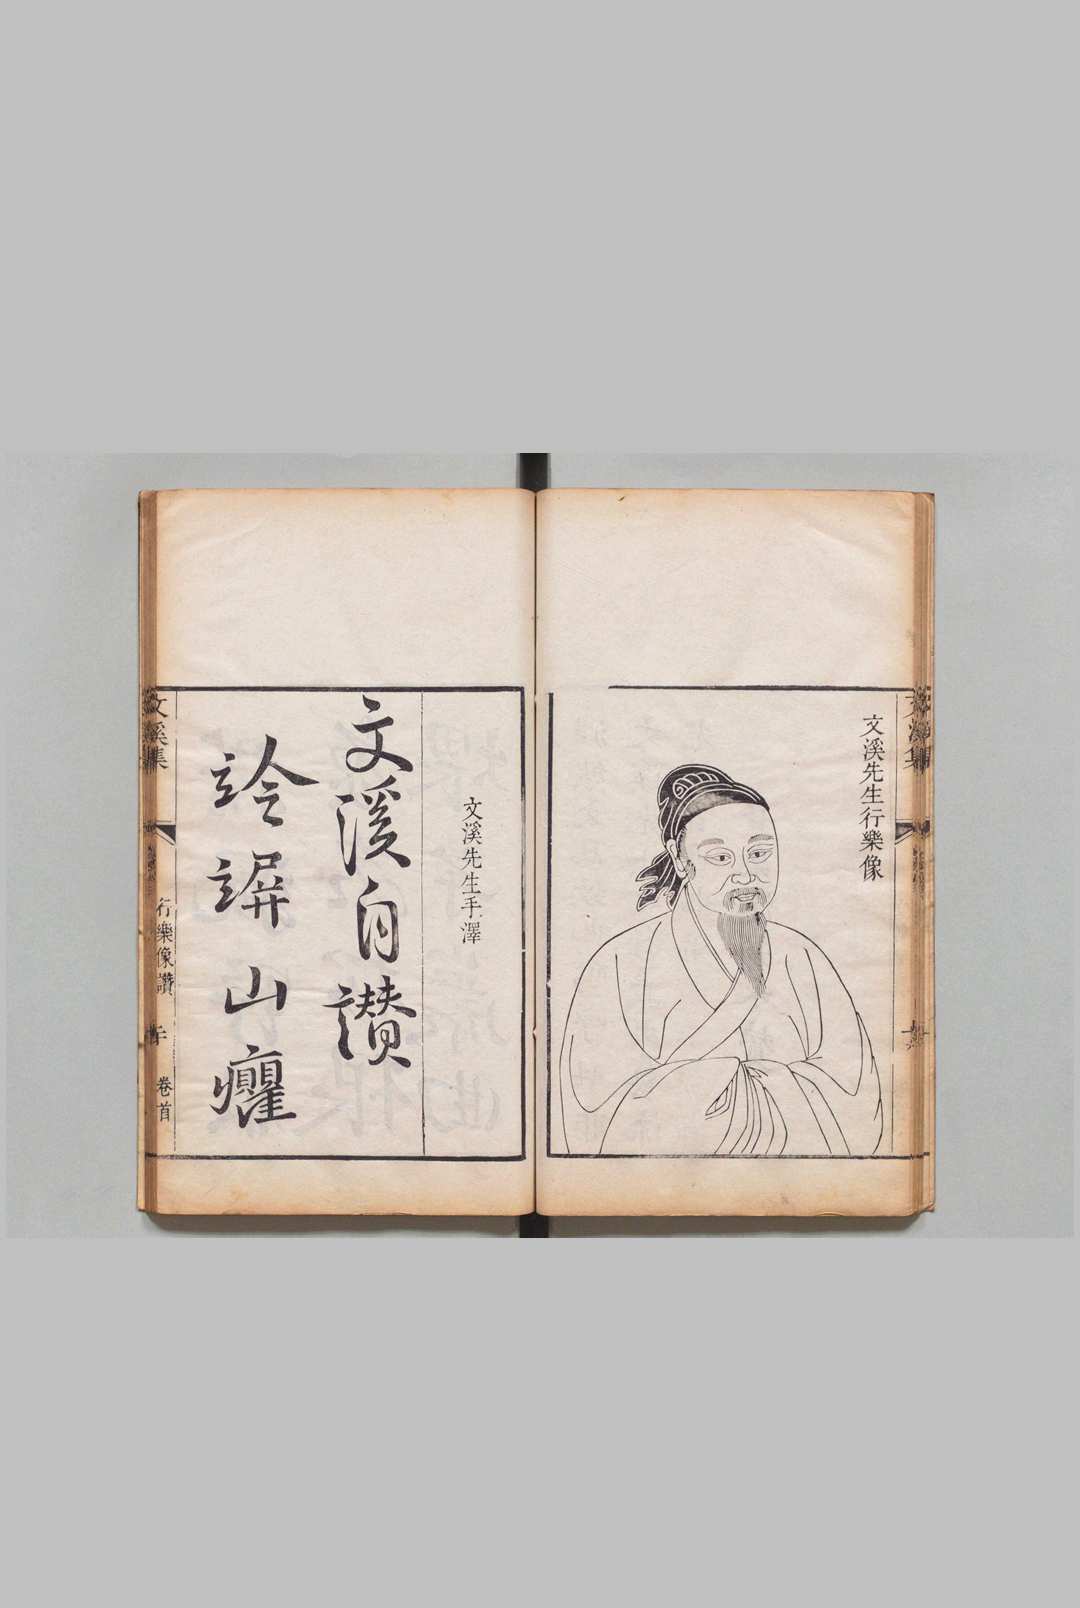 文溪先生行樂像
文溪先生手澤
文溪自讚
竛竮山癯
文溪集
行樂像讚
卷首